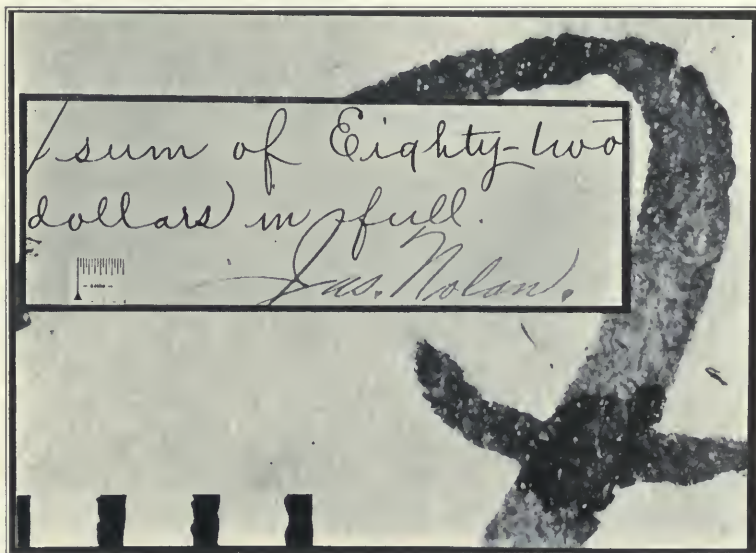 sum of Eighty-two
dollars in full.
Jas. Nolan.